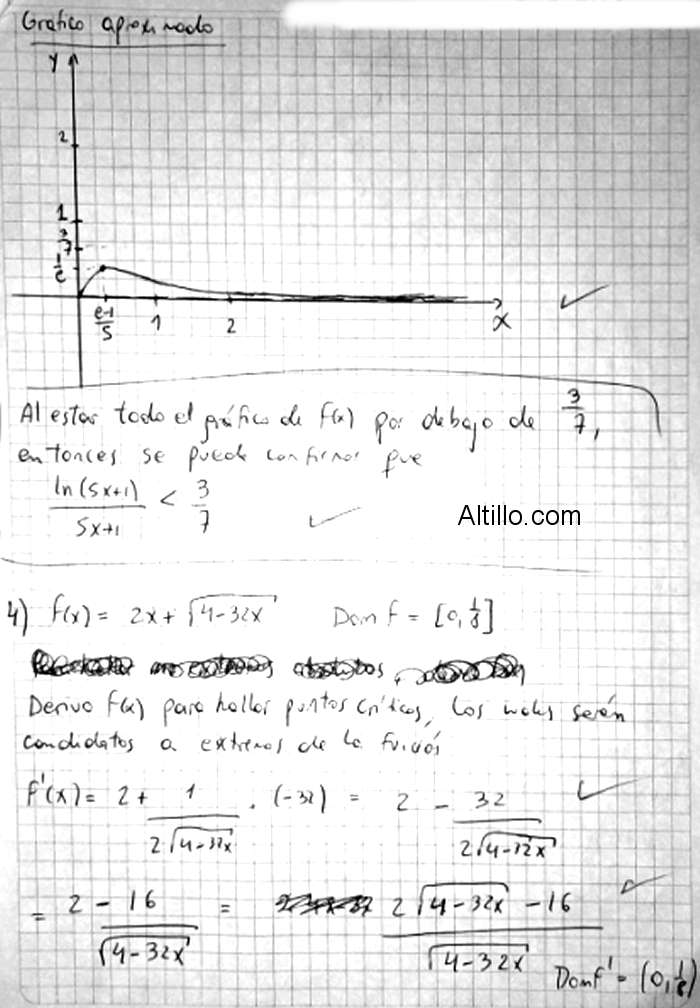 Grafico aproximado
y
2
1
3/7
1/e
e-1/5
1
2
x
Al estar todo el gráfico de f(x) por debajo de 3/7,
entonces se puede confirmar que
ln(5x+1)/5x+1 < 3/7
Altillo.com
4) f(x) = 2x + √4-32x Dom f = [0, 1/8]
Derivo f(x) para hallar puntos críticos, los cuales serán
candidatos a extremos de la
f'(x) = 2 + 1/2√4-32x . (-32) = 2 - 32/2√4-32x
= 2 - 16/√4-32x = 2√4-32x - 16/√4-32x
Dom f' = (0, 1/8)